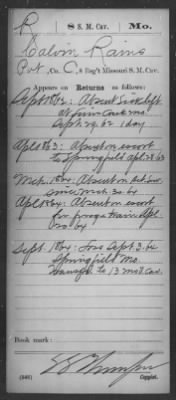 R | 8 S. M. Cav. | Mo.
Calvin Rains
Pvt, Co. C, 8 Reg't Missouri S. M. Cav.
Appears on Returns as follows:
Sept 1862: Absent
Mo
Sept 29, 62 1 day
Apl 1863: Absent on escort
to Springfield Apl 28 63
Mch. 1864: Absent on
since Mch 30 64
Apl 1864: Absent on escort
for forage train Apl
64
Sept. 1864: Loss Sept 3, 64
Springfield Mo
Transf. to 13 Mo. Cav.
Book mark:
(546)
Copyist.